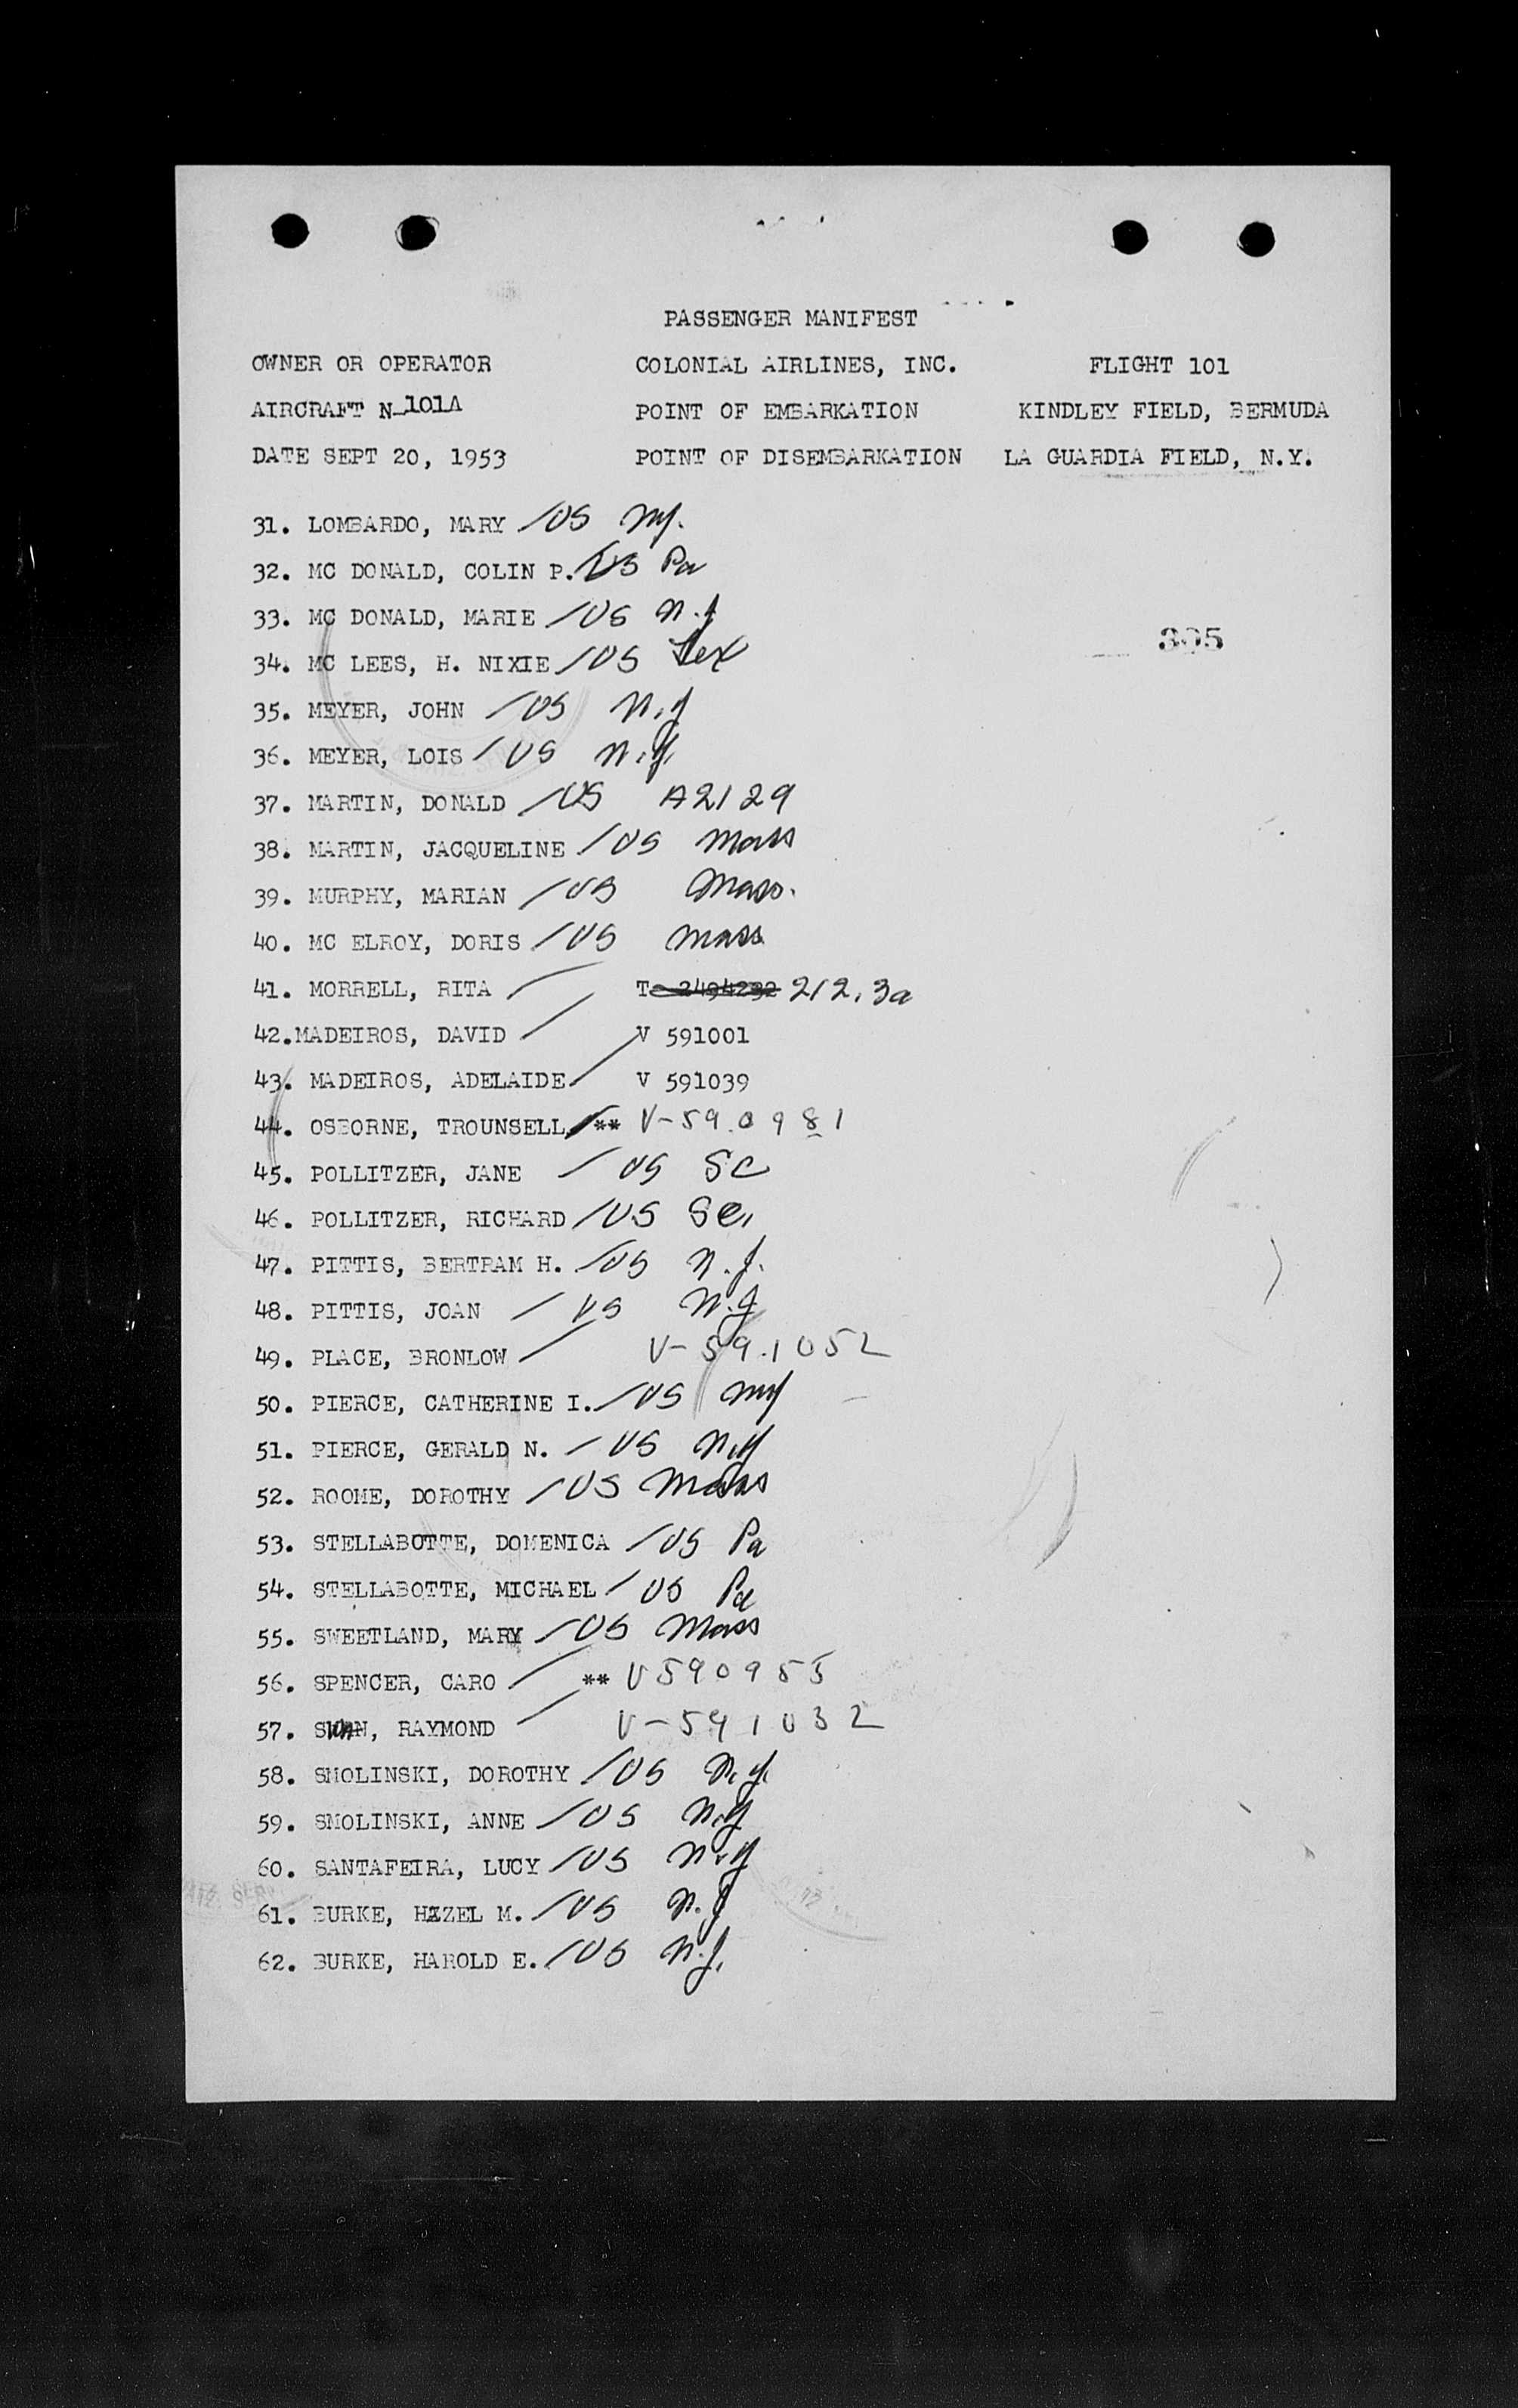 PASSENGER MANIFEST
OWNER OR OPERATOR COLONIAL AIRLINES, INC. FLIGHT 101
AIRCRAFT N-101A POINT OF EMBARKATION KINDLEY FIELD, BERMUDA
DATE SEPT 20, 1953 POINT OF DISEMBARKATION LA GUARDIA FIELD, N.Y.
31. LOMBARDO, MARY / US NY.
32. MC DONALD, COLIN P. / US Pa
33. MC DONALD, MARIE / US N.J
305
34. MC LEES, H. NIXIE / US Tex
35. MEYER, JOHN / US N.Y
36. MEYER, LOIS / US N.Y.
37. MARTIN, DONALD / US A2129
38. MARTIN, JACQUELINE / US Mass
39. MURPHY, MARIAN / US Mass.
40. MC ELROY, DORIS / US Mass
41. MORRELL, RITA / T 2494232 212.3a
42.MADEIROS, DAVID / V 591001
43. MADEIROS, ADELAIDE / V 591039
44. OSBORNE, TROUNSELL / ** V-590981
45. POLLITZER, JANE / US SC
46. POLLITZER, RICHARD / US SC.
47. PITTIS, BERTRAM H. / US N.J.
48. PITTIS, JOAN / US N.J
49. PLACE, BRONLOW / V-591052
50. PIERCE, CATHERINE I. / US NY
51. PIERCE, GERALD N. / US N.Y
52. ROOME, DOROTHY / US Mass
53. STELLABOTTE, DOMENICA / US Pa
54. STELLABOTTE, MICHAEL / US Pa
55. SWEETLAND, MARY / US Mass
56. SPENCER, CARO / ** V590955
57. SWAN, RAYMOND / V-591032
58. SMOLINSKI, DOROTHY / US N.Y.
59. SMOLINSKI, ANNE / US N.Y
60. SANTAFEIRA, LUCY / US N.Y
61. BURKE, HAZEL M. / US N.J
62. BURKE, HAROLD E. / US N.J.